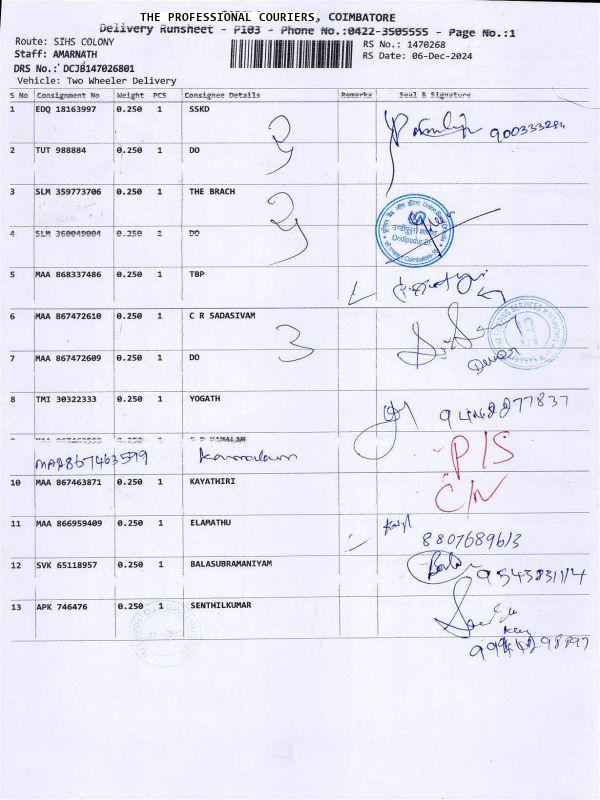 THE PROFESSIONAL COURIERS, COIMBATORE
Delivery Runsheet - P103 - Phone No.:0422-3505555 - Page No.:1
Route: SIHS COLONY RS No.: 1470268
Staff: AMARNATH RS Date: 06-Dec-2024
DRS No.: DCJB147026801
Vehicle: Two Wheeler Delivery
S No Consignment No Weight PCS Consignee Details Remarks Seal & Signature
1 EDQ 18163997 0.250 1 SSKD
2 TUT 988884 0.250 1 DO
3 SLM 359773706 0.250 1 THE BRACH
4 SLM 360049004 0.250 1 DO
Union Bank of India
Ondipudur Br
Coimbatore
5 MAA 868337486 0.250 1 TBP
6 MAA 867472610 0.250 1 C R SADASIVAM
3
7 MAA 867472609 0.250 1 DO
8 TMI 30322333 0.250 1 YOGATH
0.250 1 KAMALAM
MAA867463599 Kammalam
P/S
10 MAA 867463871 0.250 1 KAYATHIRI
C/N
11 MAA 866959409 0.250 1 ELAMATHU
8807689613
12 SVK 65118957 0.250 1 BALASUBRAMANIYAM
13 APK 746476 0.250 1 SENTHILKUMAR